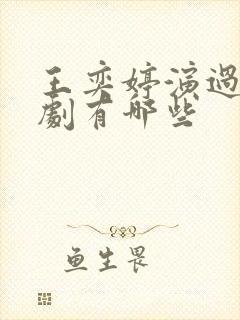 王奕婷演過
劇有哪些
鱼生畏